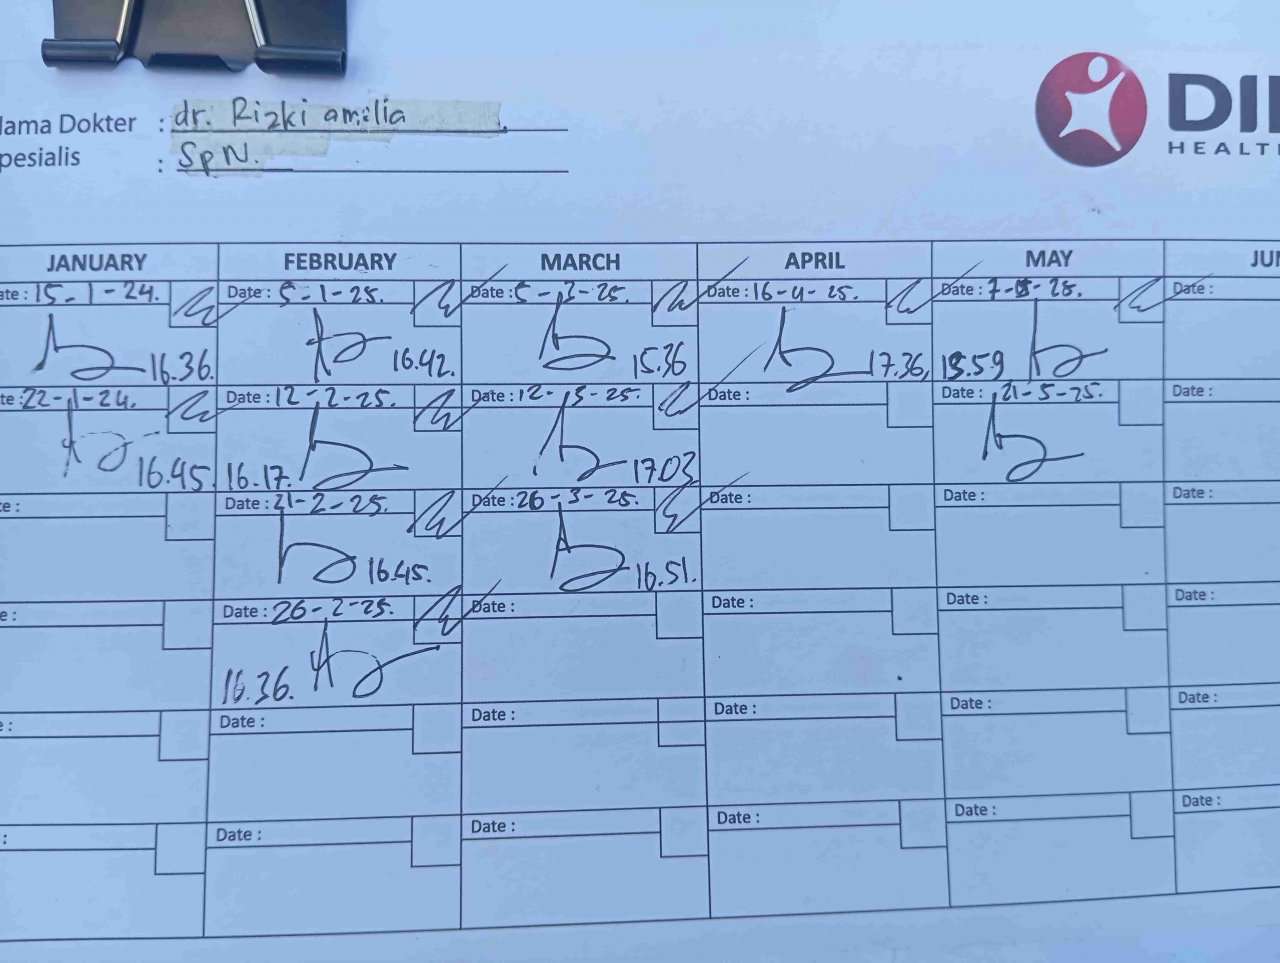 lama Dokter : dr. Rizki amelia
pesialis : SpN.
DI
HEALT
JANUARY FEBRUARY MARCH APRIL MAY JU
ate : 15-1-24. Date : 5-1-25. Date : 5-3-25. Date : 16-4-25. Date : 7-5-25. Date :
16.36. 16.42. 15.36 17.36, 15.59
te : 22-1-24. Date : 12-2-25. Date : 12-3-25. Date : Date : 21-5-25. Date :
16.45. 16.17. 17.03
e : Date : 21-2-25. Date : 26-3-25. Date : Date : Date :
16.45. 16.51.
e : Date : 26-2-25. Date : Date : Date : Date :
16.36.
: Date : Date : Date : Date : Date :
: Date : Date : Date : Date : Date :